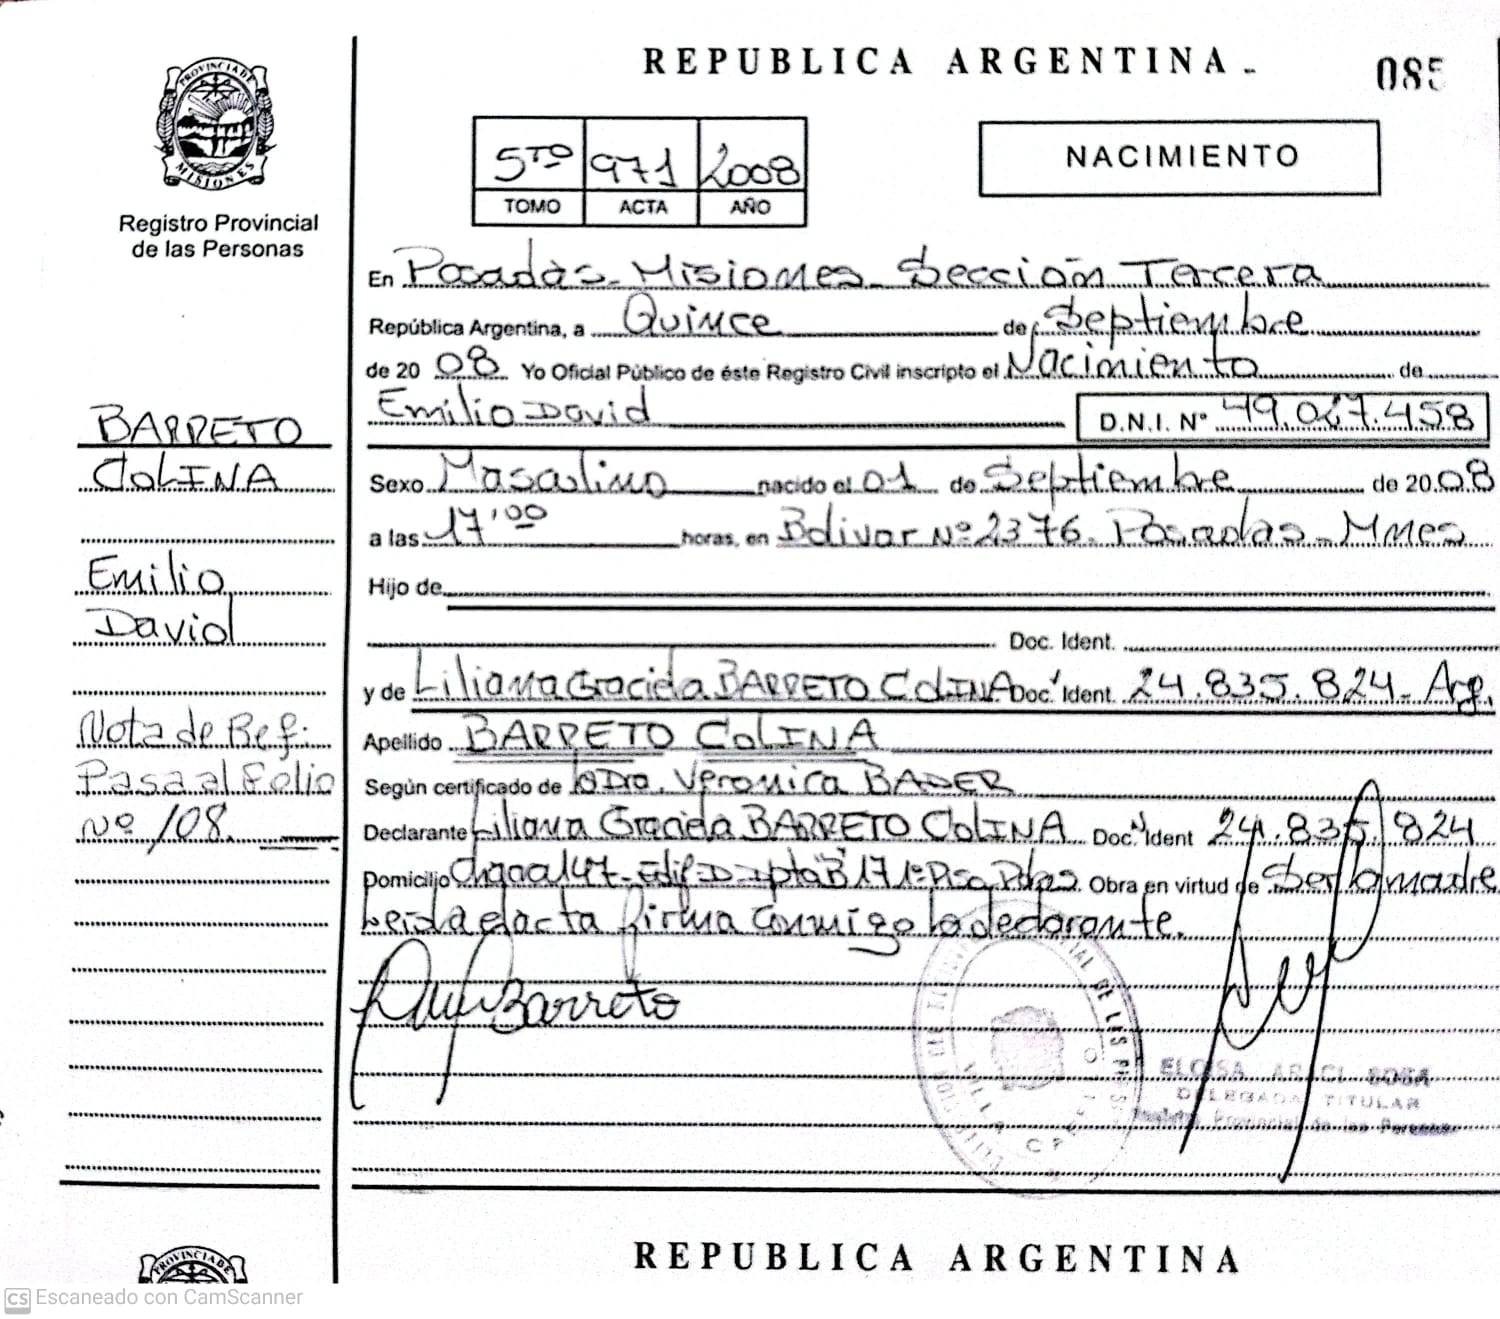 REPUBLICA ARGENTINA
085
PROVINCIA DE
MISIONES
Registro Provincial
de las Personas
5TO 971 2008
TOMO ACTA AÑO
NACIMIENTO
En Posadas - Misiones - Sección Tercera
República Argentina, a Quince de Septiembre
de 2008 Yo Oficial Público de éste Registro Civil inscripto el Nacimiento de
Emilio David D.N.I. Nº 49.047.458
Sexo Masculino nacido el 01 de Septiembre de 2008
a las 17'00 horas, en Bolivar Nº 2376. Posadas - Mnes
Hijo de
Doc. Ident.
y de Liliana Graciela BARRETO COLINA Doc. Ident. 24.835.824 - Arg.
Apellido BARRETO COLINA
Según certificado de la Dra. Veronica BADER
Declarante Liliana Graciela BARRETO COLINA Doc. Ident 24.835.824
Domicilio Chacra 147 - Edif-D- Dpto B 17 1º Piso Pdas. Obra en virtud de Ser la madre
Leida el acta firma conmigo la declarante.
Barreto
ELOISA ARACI SOSA
DELEGADA TITULAR
Registro Provincial de las Personas
BARRETO
COLINA
Emilio
David
Nota de Ref:
Pasa al Folio
Nº 108.
REPUBLICA ARGENTINA
PROVINCIA DE
CS Escaneado con CamScanner